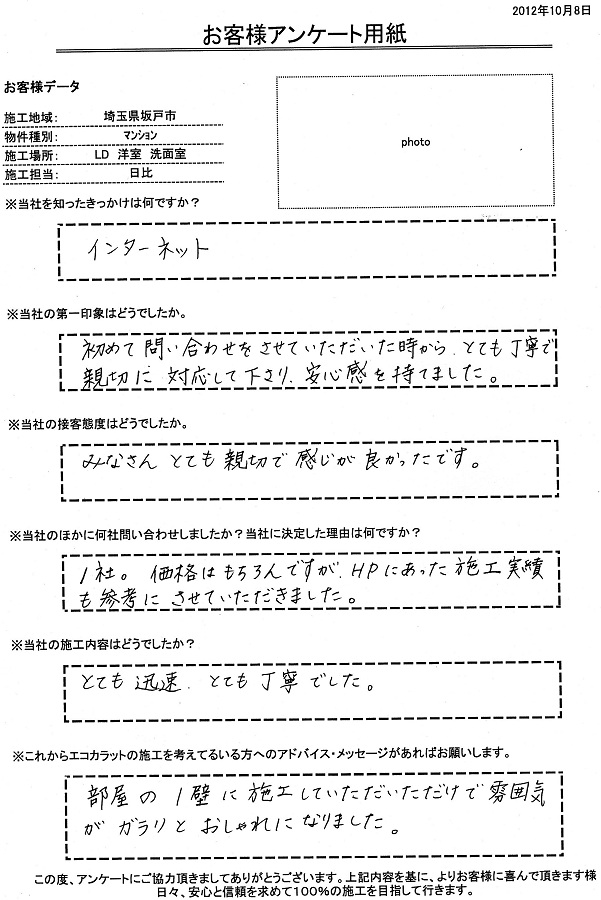 2012年10月8日
お客様アンケート用紙
お客様データ
施工地域: 埼玉県坂戸市
物件種別: マンション
施工場所: LD 洋室 洗面室
施工担当: 日比
photo
※当社を知ったきっかけは何ですか？
インターネット
※当社の第一印象はどうでしたか。
初めて問い合わせをさせていただいた時から、とても丁寧で
親切に対応して下さり、安心感を持てました。
※当社の接客態度はどうでしたか。
みなさんとても親切で感じが良かったです。
※当社のほかに何社問い合わせしましたか？当社に決定した理由は何ですか？
1社。価格はもちろんですが、HPにあった施工実績
も参考にさせていただきました。
※当社の施工内容はどうでしたか？
とても迅速、とても丁寧でした。
※これからエコカラットの施工を考えてるいる方へのアドバイス・メッセージがあればお願いします。
部屋の1壁に施工していただいただけで雰囲気
がガラリとおしゃれになりました。
この度、アンケートにご協力頂きましてありがとうございます。上記内容を基に、よりお客様に喜んで頂きます様
日々、安心と信頼を求めて100%の施工を目指して行きます。